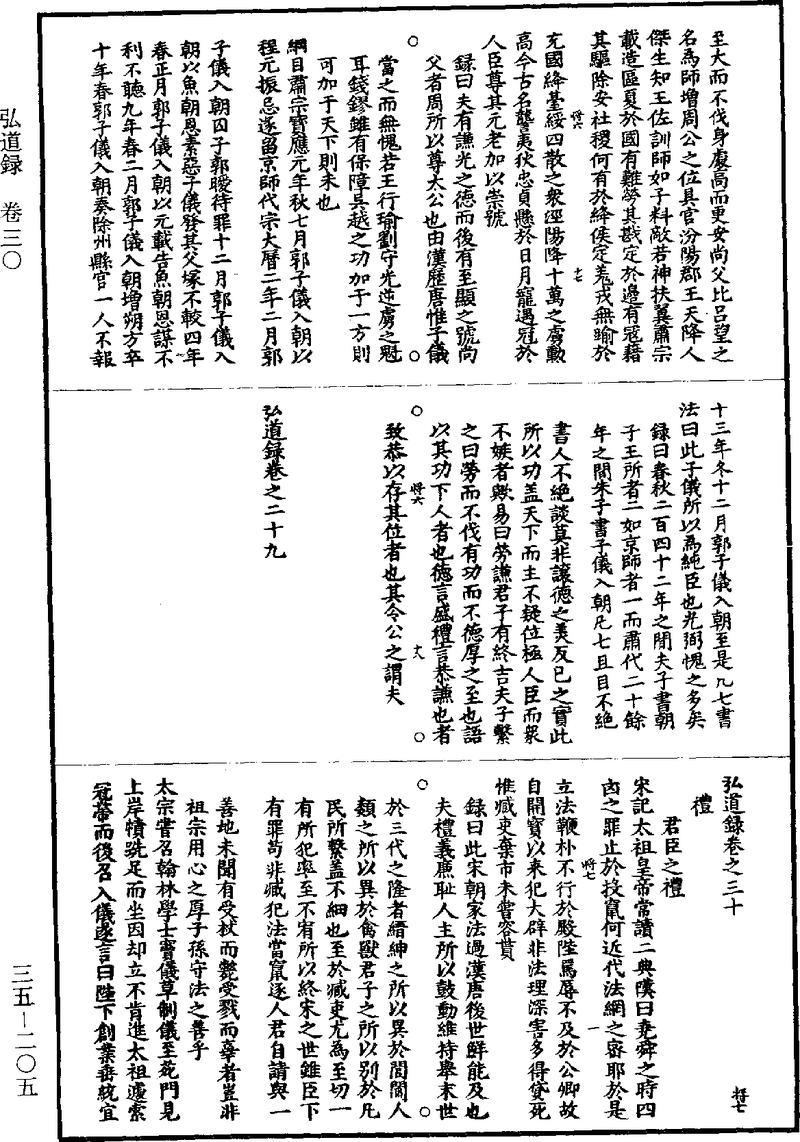 至大而不伐身廈高而更安尚父比呂望之
名為師增周公之位具官汾陽郡王天降人
傑生知王佐訓師如子料敵若神扶翼肅宗
載造區夏於國有難勞其戡定於邊有寇藉
其驅除安社稷何有於絳侯定羌戎無踰於
充國絳臺綏四散之衆徑陽降十萬之虜勳
高今古名讋夷狄忠貞懸於日月寵遇冠於
人臣尊其元老加以崇號
錄曰夫有謙光之德而後有至顯之號尚
父者周所以尊太公也由漢歷唐惟子儀
當之而無愧若王行瑜劉守光逆虜之魁
耳錢鏐雖有保障吳越之功加于一方則
可加于天下則未也
綱目肅宗寶應元年秋七月郭子儀入朝以
程元振忌遂留京師代宗大曆二年二月郭
子儀入朝囚子郭曖待罪十二月郭子儀入
朝以魚朝恩素惡子儀發其父塚不較四年
春正月郭子儀入朝以元載告魚朝恩謀不
利不聽九年春二月郭子儀入朝增朔方卒
十年春郭子儀入朝奏除州縣官一人不報
十三年冬十二月郭子儀入朝至是凡七書
法曰此子儀所以為純臣也光弼愧之多矣
錄曰春秋二百四十二年之間夫子書朝
子王所者二如京師者一而肅代二十餘
年之間朱子書子儀入朝凡七且目不絕
書人不絕談莫非讓德之美反己之實此
所以功蓋天下而主不疑位極人臣而衆
不嫉者歟易曰勞謙君子有終吉夫子繫
之曰勞而不伐有功而不德厚之至也語
以其功下人者也德言盛禮言恭謙也者
致恭以存其位者也其令公之謂夫
弘道錄卷之二十九
弘道錄卷之三十
禮
君臣之禮
宋記太祖皇帝常讀二典嘆曰堯舜之時四
凶之罪止於投竄何近代法網之密耶於是
立法鞭朴不行於殿陛罵辱不及於公卿故
自開寶以來犯大辟非法理深害多得貸死
惟贓吏棄市未嘗容貰
錄曰此宋朝家法過漢唐後世鮮能及也
夫禮義廉恥人主所以鼓動維持舉末世
於三代之隆者縉紳之所以異於閭閻人
類之所以異於禽獸君子之所以別於凡
民所繫蓋不細也至於贓吏尤為至切一
有所犯率至不宥所以終宋之世雖臣下
有罪苟非贓犯法當竄逐人君自請與一
善地未聞有受杖而斃受戮而辜者豈非
祖宗用心之厚子孫守法之善乎
太宗嘗召翰林學士竇儀草制儀至苑門見
上岸幘跣足而坐因却立不肯進太祖遽索
冠帶而後召入儀遂言曰陛下創業垂統宜
弘道録 卷三〇
三五—二〇五
將六
十七
將六
十八
將七
一
將七